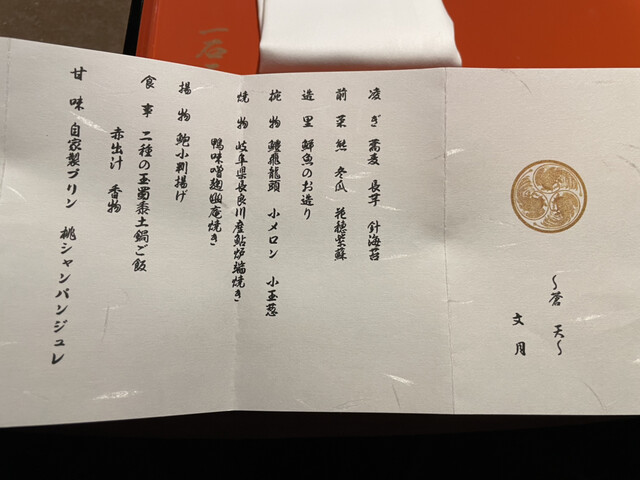 〜蒼天〜
文月
凌ぎ 蕎麦 長芋 針海苔
前菜 鮑 冬瓜 花穂紫蘇
造里 鮮魚のお造り
椀物 鱧飛龍頭 小メロン 小玉葱
焼物 岐阜県長良川産鮎炉端焼き
鴨味噌麹幽庵焼き
揚物 鮑小判揚げ
食事 二種の玉蜀黍土鍋ご飯
赤出汁 香物
甘味 自家製プリン 桃シャンパンジュレ
一石